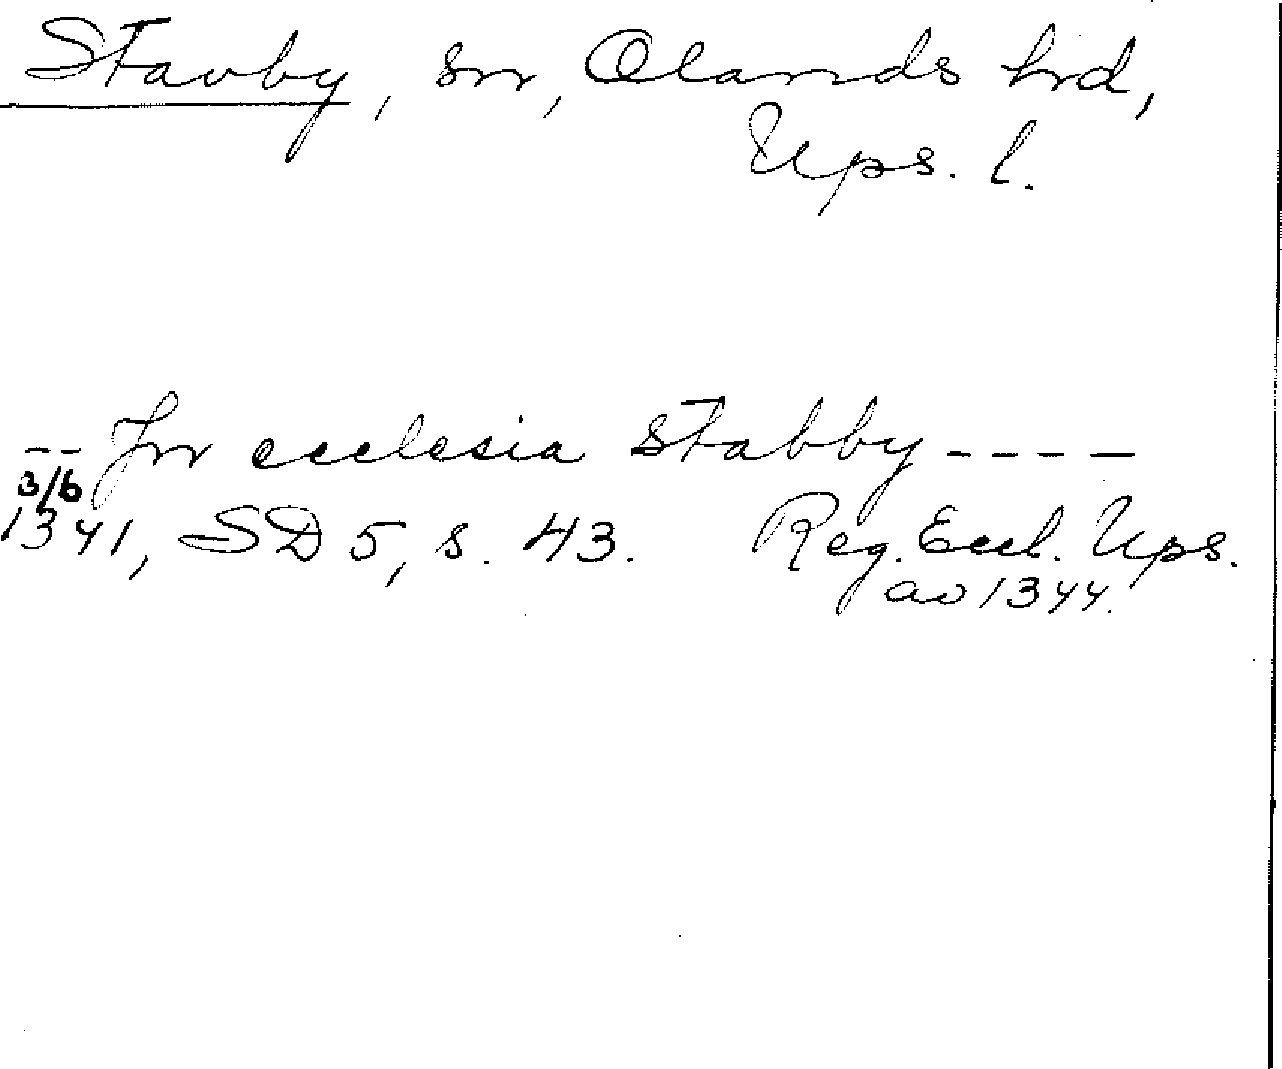 Stavby, sn, Olands hd,
Ups. l.
-- In ecclesia Stabby ----
3/6
1341, SD 5, s. 43. Reg. Eccl. Ups.
av 1344.